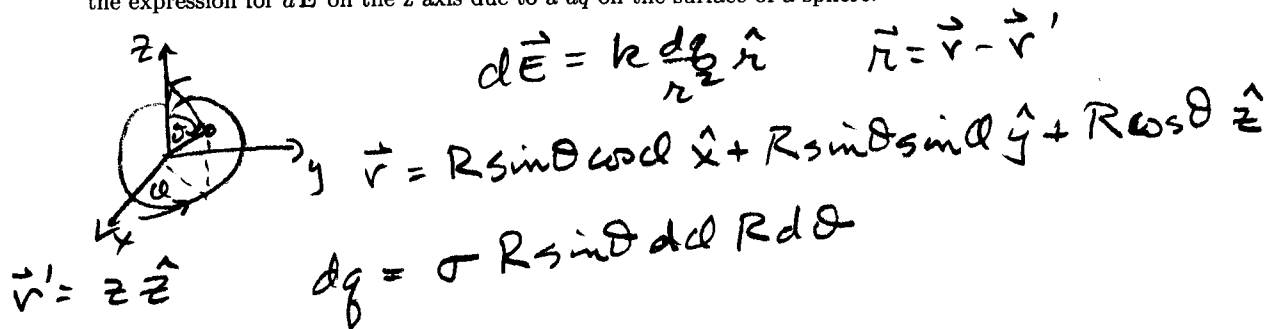 the expression for dE on the z axis due to a dq on the surface of a sphere.
z
dE⃗ = k dq/r² r̂    r⃗ = v⃗ - v⃗'
θ
y
v⃗ = R sinθ cosφ x̂ + R sinθ sinφ ŷ + R cosθ ẑ
φ
x
v⃗' = z ẑ
dq = σ R sinθ dφ R dθ